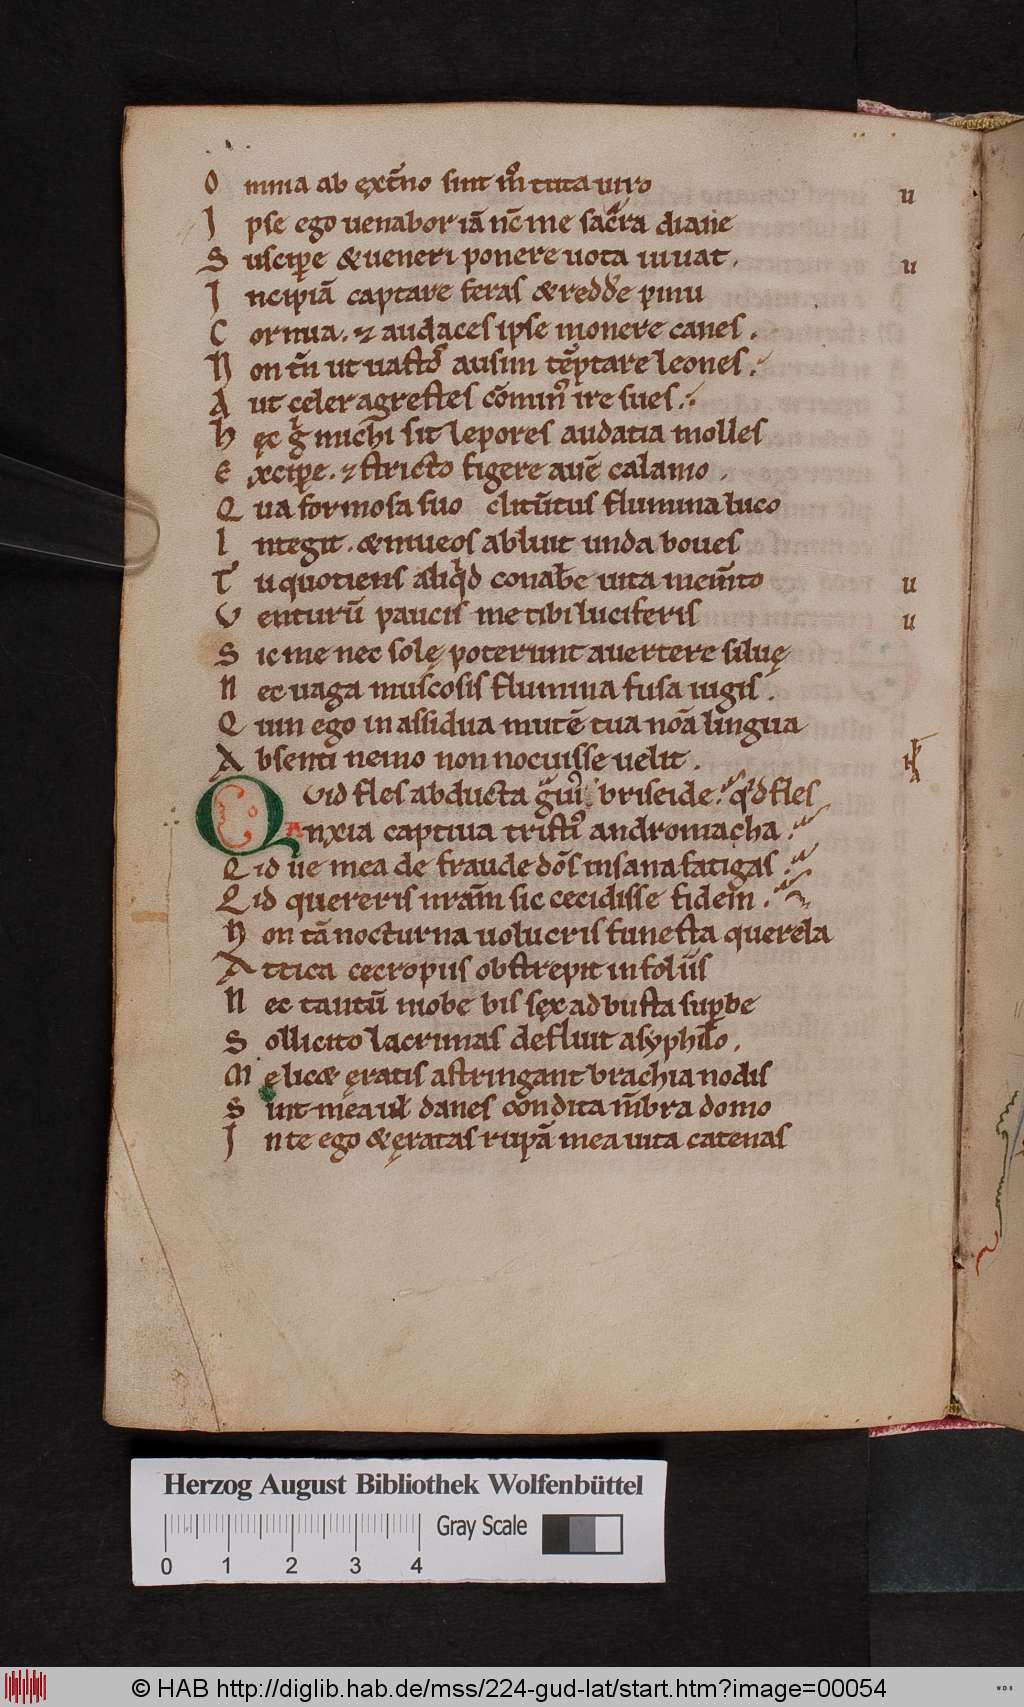 O mnia ab ęxt̄no sint m̊ tuta uiro
I pse ego uenabor iā nc̄ me sacra dianę
S uscip̄e & ueneri ponere uota iuuat.
I ncipiā captare feras & redde᷒ pinu
C ornua. ⁊ audaces ipse monere canes.
N on tn̄ ut uasto᷒ ausim tēptare leones.
A ut celer agrestes cōmin᷒ ire sues.
h ęc g̊ michi sit lepores audatia molles
E xcip̄e. ⁊ stricto figere auē calamo.
Q ua formosa suo clitūtus flumina luco
I ntegit. & niueos abluit unda boues
T u quotiens aliqd conabe᷒ uita mem̄to
V enturū paucis me tibi luciferis
S ic me nec solę poterunt auertere siluę
N ec uaga muscosis flumina fusa iugis.
Q uin ego in assidua mutē tua noīa lingua
A bsenti nemo non nocuisse uelit.
Q Vid fles abducta gui᷒ briseide. qd fles
Anxia captiua tristi᷒ andromacha.
Q id ue mea de fraude dōs insana fatigas.
Q id quereris nrām sic cecidisse fidem.
N on tā nocturna uolucris funesta querela
A ttica cecropiis obstrepit in foliis
N ec tantū niobe bis sęx ad busta sup̄be
S ollicito lacrimas defluit asyphilo.
M e licæ ęratis astringant brachia nodis
S int mea ul̄ danes condita m̄bra domo
I n te ego & ęratas rūpā mea uita catenas
u
u
u
u
Herzog August Bibliothek Wolfenbüttel
Gray Scale
0 1 2 3 4
© HAB http://diglib.hab.de/mss/224-gud-lat/start.htm?image=00054